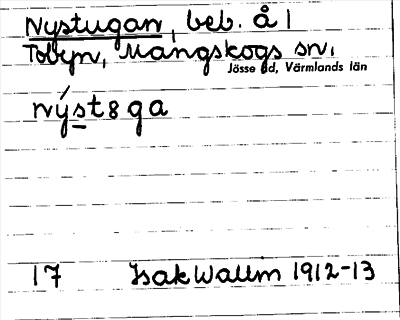 Nystugan, beb. å 1
Tobyn, Mangskogs sn.
Jösse hd, Värmlands län
nýst8ga
17 Isak Wallm 1912-13